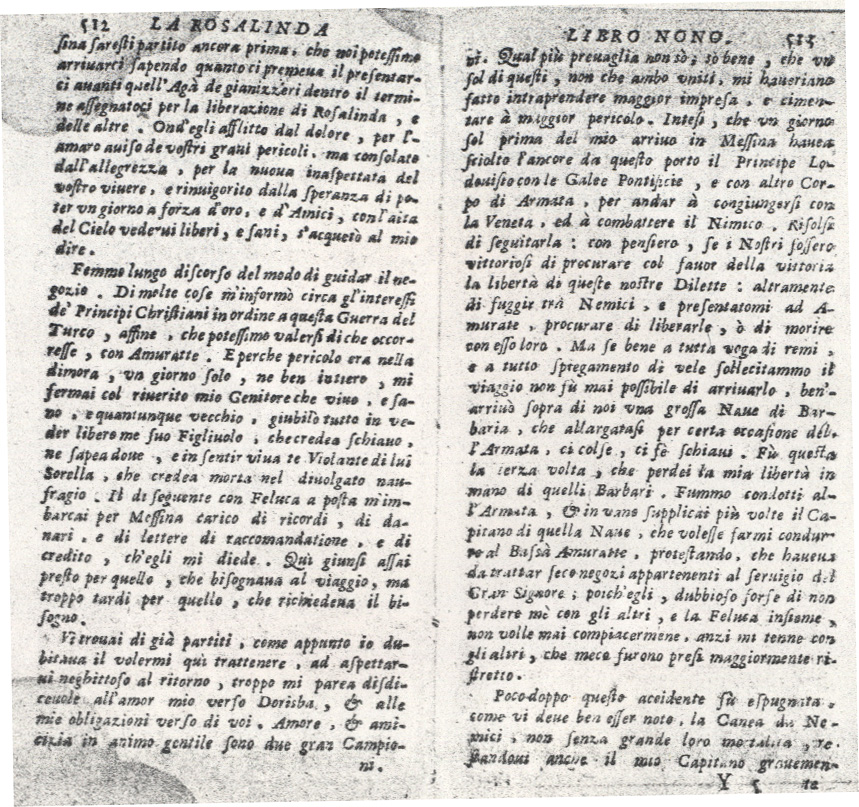 512 LA ROSALINDA
sina saresti partito ancora prima, che noi potessimo
arriuarci sapendo quanto ci premeua il presentar-
ci auanti quell'Agà de gianizzeri dentro il termi-
ne assegnatoci per la liberazione di Rosalinda, e
delle altre. Ond'egli afflitto dal dolore, per l'-
amaro auiso de vostri graui pericoli, ma consolato
dall'allegrezza, per la nuoua inaspettata del
vostro viuere, e rinuigorito dalla speranza di po-
ter vn giorno a forza d'oro, e d'Amici, con l'aita
del Cielo vederui liberi, e sani, s'acquetò al mio
dire.
Femmo lungo discorso del modo di guidar il ne-
gozio. Di molte cose m'informò circa gl'interessi
de' Principi Christiani in ordine a questa Guerra del
Turco, affine, che potessimo valersi di che occor-
resse, con Amuratte. E perche pericolo era nella
dimora, vn giorno solo, ne ben intiero, mi
fermai col riuerito mio Genitore che viuo, e sa-
no, e quantunque vecchio, giubilò tutto in ve-
der libero me suo Figliuolo, che credea schiauo,
ne sapea doue, e in sentir viua te Violante di lui
Sorella, che credea morta nel diuolgato nau-
fragio. Il dì seguente con Feluca a posta m'im-
barcai per Messina carico di ricordi, di da-
nari, e di lettere di raccomandatione, e di
credito, ch'egli mi diede. Quì giunsi assai
presto per quello, che bisognaua al viaggio, ma
troppo tardi per quello, che richiedeua il bi-
sogno.
Vi trouai di già partiti, come appunto io du-
bitaua il volermi quì trattenere, ad aspettar-
ui neghittoso al ritorno, troppo mi parea disdi-
ceuole all'amor mio verso Dorisba, & alle
mie obligazioni verso di voi. Amore, & ami-
cizia in animo gentile sono due gran Campio-
ni.
LIBRO NONO. 513
ni. Qual più preuaglia non sò; sò bene, che vn
sol di questi, non che ambo vniti, mi haueriano
fatto intraprendere maggior impresa, e cimen-
tare à maggior pericolo. Intesi, che vn giorno
sol prima del mio arriuo in Messina hauea
sciolto l'ancore da questo porto il Principe Lo-
douisio con le Galee Pontificie, e con altro Cor-
po di Armata, per andar à congiungersi con
la Veneta, ed à combattere il Nimico. Risolsi
di seguitarla: con pensiero, se i Nostri fossero
vittoriosi di procurare col fauor della vittoria
la libertà di queste nostre Dilette: altramente
di fuggir trà Nemici, e presentatomi ad A-
murate, procurare di liberarle, ò di morire
con esso loro. Ma se bene a tutta voga di remi,
e a tutto spiegamento di vele sollecitammo il
viaggio non fù mai possibile di arriuarlo, ben'-
arriuò sopra di noi vna grossa Naue di Bar-
baria, che allargatasi per certa occasione del-
l'Armata, ci colse, ci fè schiaui. Fù questa
la terza volta, che perdei la mia libertà in
mano di quelli Barbari. Fummo condotti al-
l'Armata, & in vano supplicai più volte il Ca-
pitano di quella Naue, che volesse farmi condur-
re al Bassà Amuratte, protestando, che haueua
da trattar seco negozi appartenenti al seruigio del
Gran Signore; poich'egli, dubbioso forse di non
perdere mè con gli altri, e la Feluca insieme,
non volle mai compiacermene, anzi mi tenne con
gli altri, che meco furono presi maggiormente ri-
stretto.
Poco doppo questo accidente fù espugnata,
come vi deue ben esser noto, la Canea da Ne-
mici, non senza grande loro mortalità, re-
standoui anche il mio Capitano grauemen-
Y 5 te